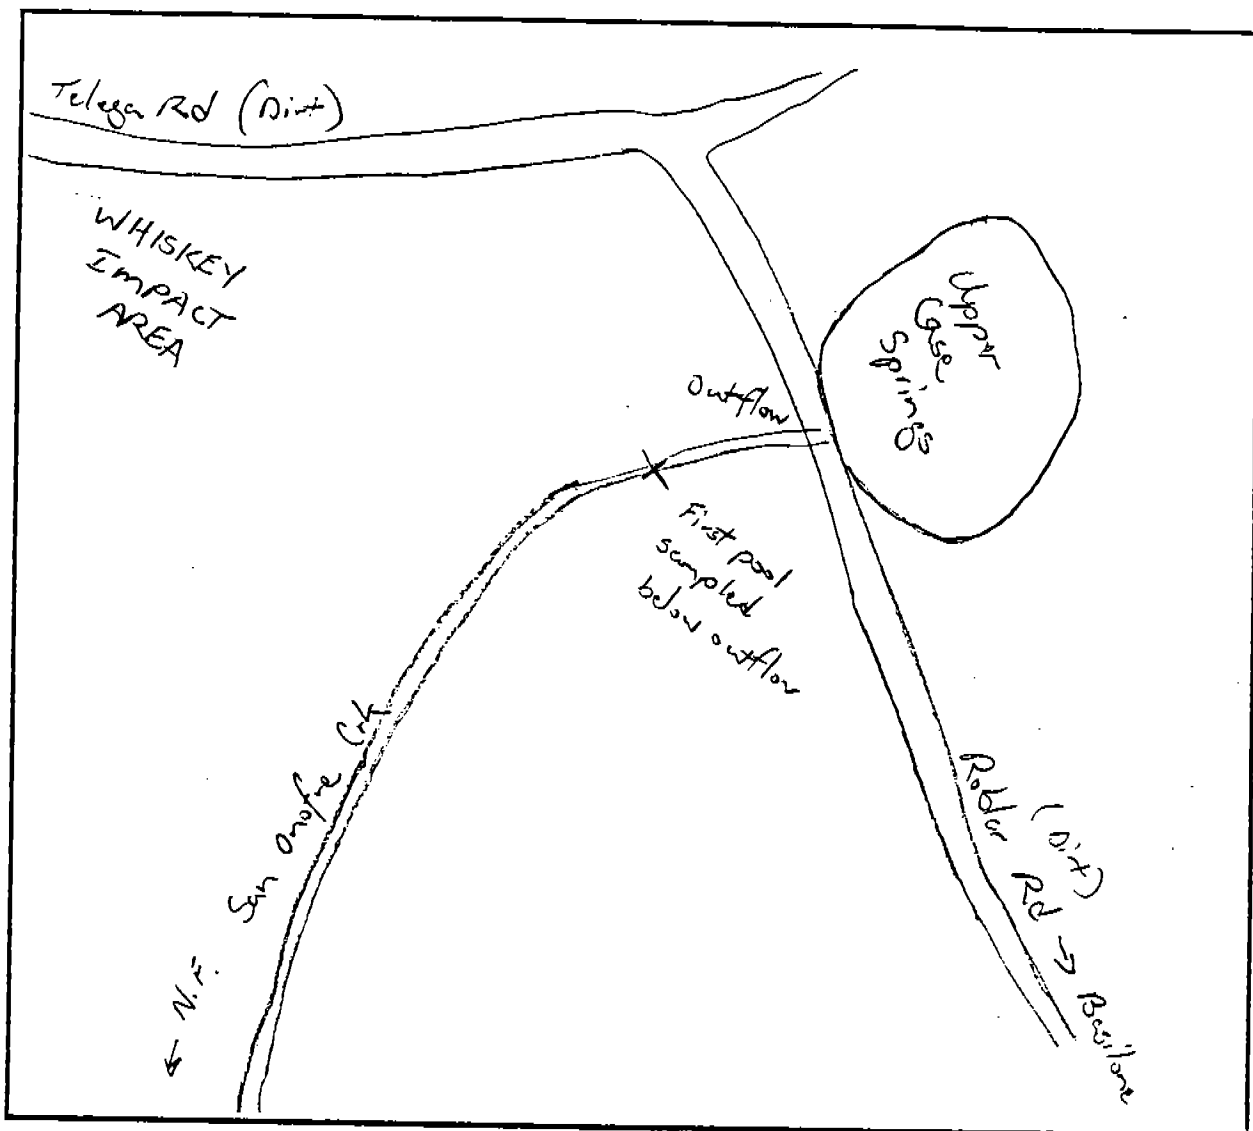 Telega Rd (Dirt)
WHISKEY
IMPACT
AREA
Upper
Case
Springs
Outflow
First pool
sampled
below outflow
San Onofre Crk
← N.F.
Roblar Rd → Basilone
(Dirt)